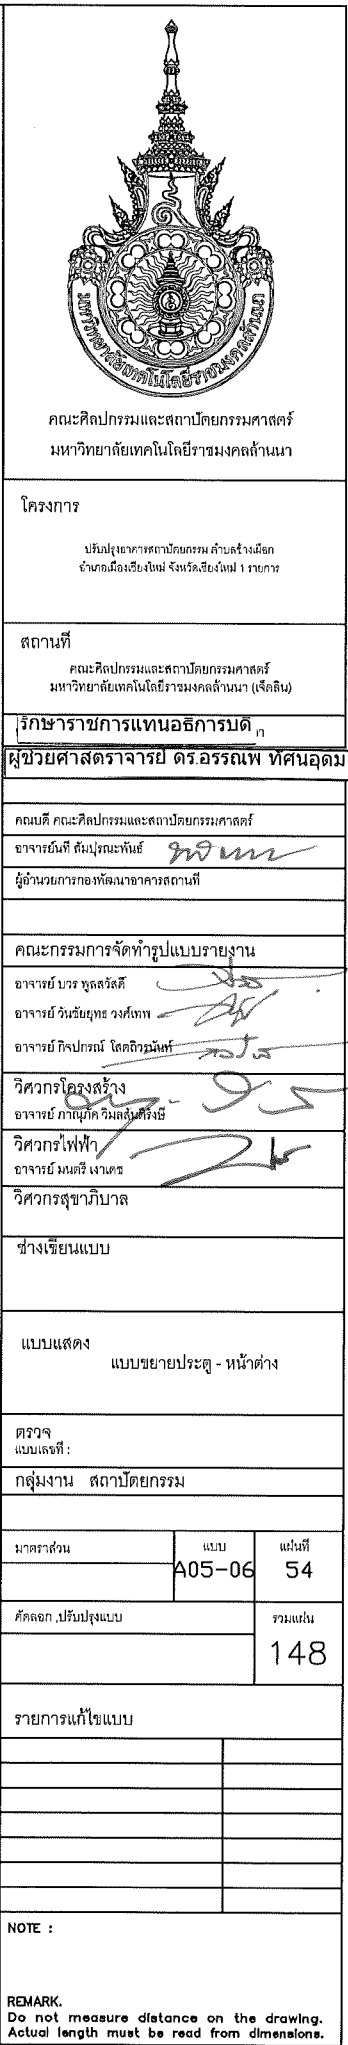 มหาวิทยาลัยเทคโนโลยีราชมงคลล้านนา
คณะศิลปกรรมและสถาปัตยกรรมศาสตร์
มหาวิทยาลัยเทคโนโลยีราชมงคลล้านนา
โครงการ
ปรับปรุงอาคารสถาปัตยกรรม ตำบลช้างเผือก
อำเภอเมืองเชียงใหม่ จังหวัดเชียงใหม่ 1 รายการ
สถานที่
คณะศิลปกรรมและสถาปัตยกรรมศาสตร์
มหาวิทยาลัยเทคโนโลยีราชมงคลล้านนา (เจ็ดลิน)
รักษาราชการแทนอธิการบดี
ผู้ช่วยศาสตราจารย์ ดร.อรรณพ ทัศนอุดม
คณบดี คณะศิลปกรรมและสถาปัตยกรรมศาสตร์
อาจารย์นที สัมปุรณะพันธ์
ผู้อำนวยการกองพัฒนาอาคารสถานที่
คณะกรรมการจัดทำรูปแบบรายงาน
อาจารย์ บวร พูลสวัสดิ์
อาจารย์ วันชัยยุทธ วงศ์เทพ
อาจารย์ กิจปกรณ์ โสตถิวรนันท์
วิศวกรโครงสร้าง
อาจารย์ ภาณุภัค
วิศวกรไฟฟ้า
อาจารย์ มนตรี เงาเดช
วิศวกรสุขาภิบาล
ช่างเขียนแบบ
แบบแสดง
แบบขยายประตู - หน้าต่าง
ตรวจ
แบบเลขที่ :
กลุ่มงาน สถาปัตยกรรม
มาตราส่วน แบบ แผ่นที่
A05-06 54
คัดลอก ,ปรับปรุงแบบ รวมแผ่น
148
รายการแก้ไขแบบ
NOTE :
REMARK.
Do not measure distance on the drawing.
Actual length must be read from dimensions.